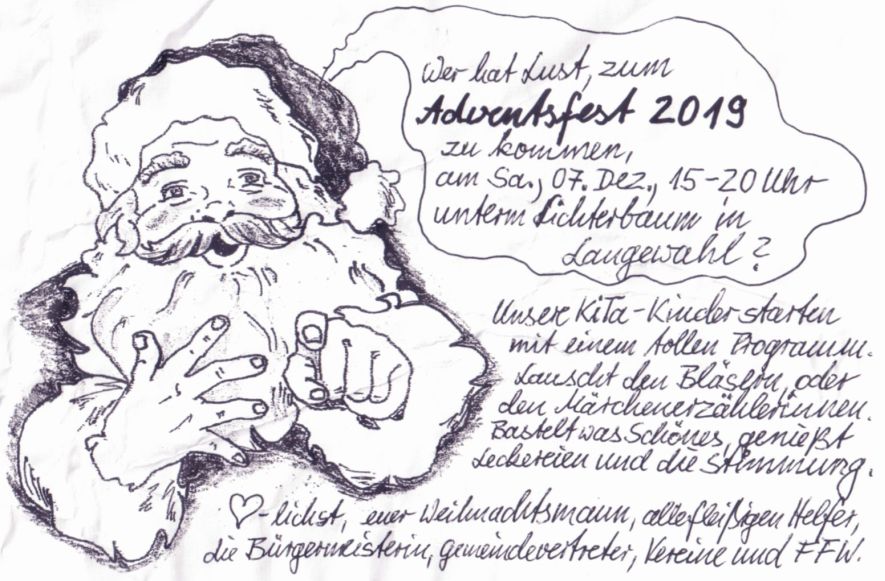 Wer hat Lust, zum
Adventsfest 2019
zu kommen,
am Sa., 07. Dez., 15-20 Uhr
unterm Lichterbaum in
Langewahl?
Unsere KiTa-Kinder starten
mit einem tollen Programm.
Lauscht den Bläsern, oder
den Märchenerzählerinnen.
Bastelt was Schönes, genießt
Leckereien und die Stimmung.
♡-lichst, euer Weihnachtsmann, alle fleißigen Helfer,
die Bürgermeisterin, Gemeindevertreter, Vereine und FFW.